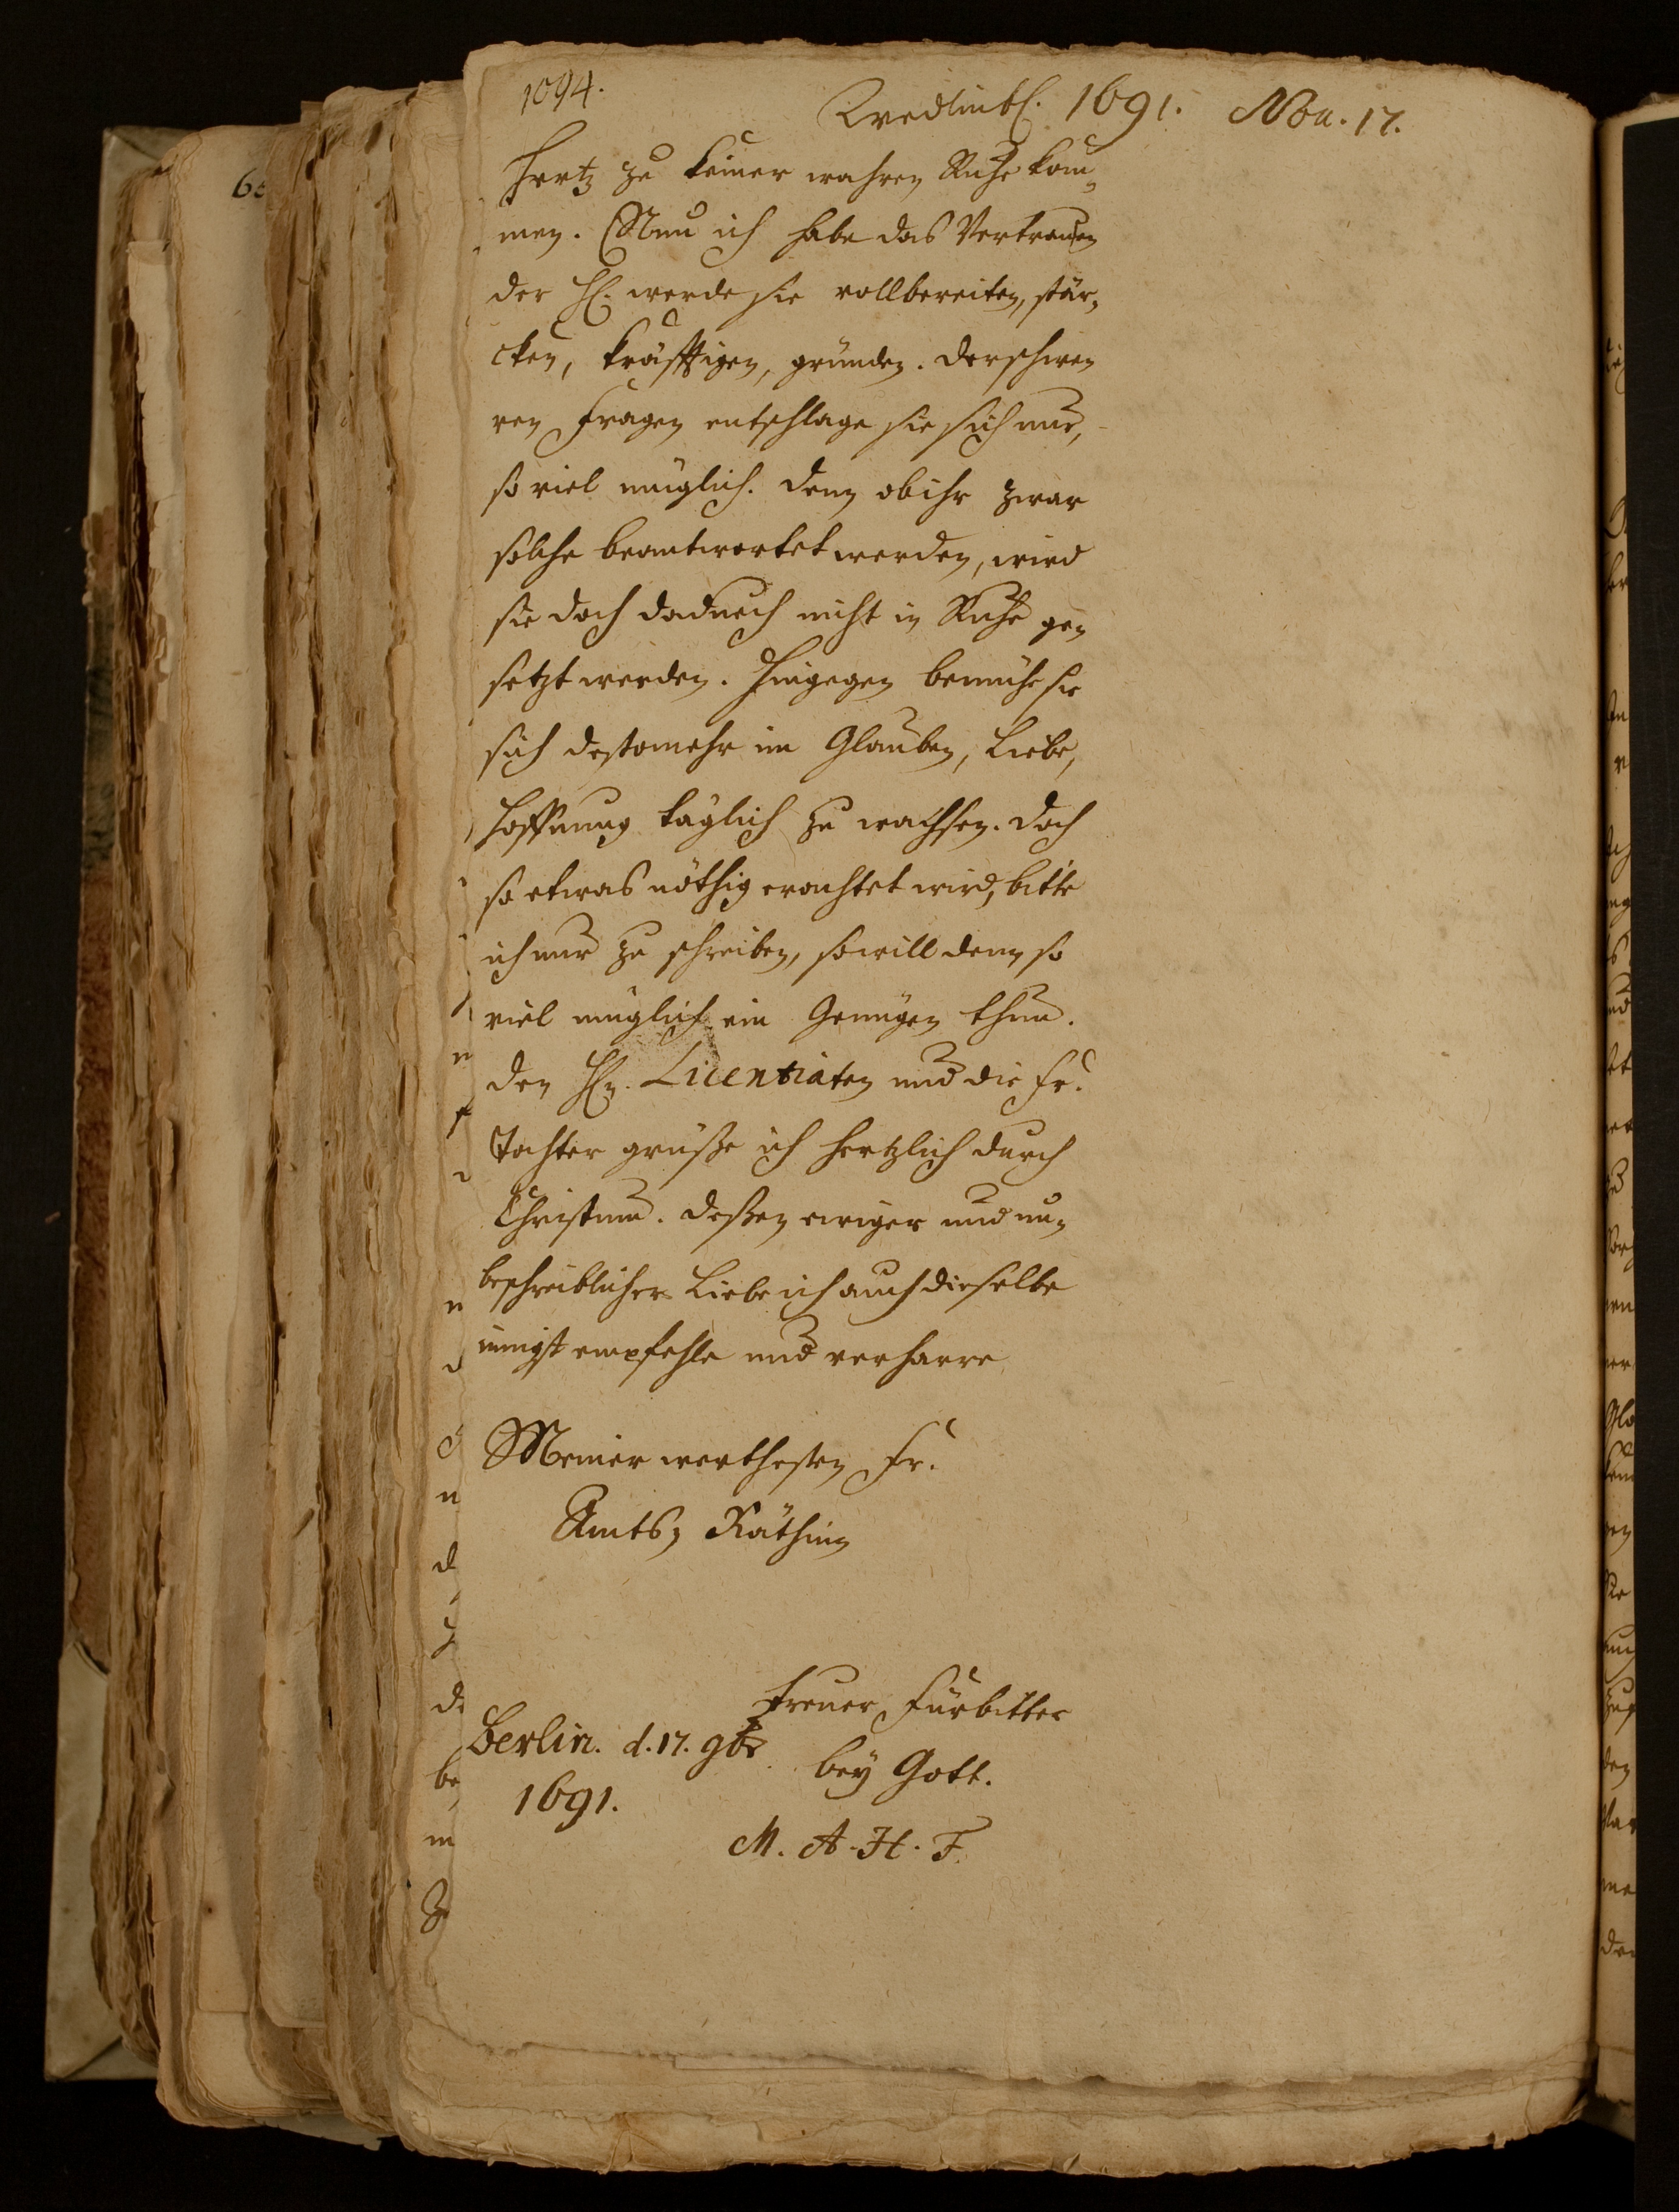 1094.
Quedlinb. 1691. Nou. 17.
Hertz zu keiner wahren Ruhe kom-
men. Nun ich habe das Vertrauen
der H. werde sie vollbereiten, stär-
cken, kräfftigen, gründen. Der schwe-
ren Fragen entschlage sie sich nur,
so viel müglich. Denn ob ihr zwar
solche beantwortet werden, wird
sie doch dadurch nicht in Ruhe ge-
setzt werden. Hingegen bemühe sie
sich destomehr im Glauben, Liebe,
Hoffnung täglich zu wachsen. Doch
so etwas nöthig erachtet wird, bitte
ich nur zu schreiben, so will denn so
viel müglich ein Genügen thun.
Den Hn. Licentiaten und die Fr.
Tochter grüße ich hertzlich durch
Christum. Deßen ewiger und un-
beschreiblicher Liebe ich auch dieselbe
innigst empfehle und verharre
Meiner werthesten Fr.
Amts- Räthin
treuer Fürbitter
Berlin. d. 17. 9br
bey Gott.
1691.
M. A. H. F.